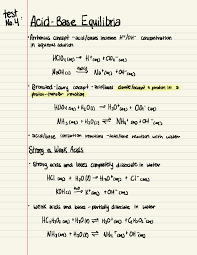 test
No. 4:
Acid-Base Equilibria
• Arrhenius concept - acids/bases increase H⁺/OH⁻ concentration
in aqueous solution
HClO₄ (aq) → H⁺(aq) + ClO₄⁻(aq)
NaOH (s) → Na⁺(aq) + OH⁻(aq)
• Bronsted-Lowry concept - acid/bases donate/accept a proton in a
proton-transfer reaction
H₂O(l) → H₃O⁺(aq) +
NH₃ (aq) + H₂O(l) ⇌ NH₄⁺(aq) + OH⁻(aq)
• acid/base ionization reactions - acid/base reaction with water
Strong & Weak Acids
• strong acids and bases completely dissociate in water
HCl (aq) + H₂O(l) → H₃O⁺(aq) + Cl⁻(aq)
KOH → K⁺(aq) + OH⁻(aq)
• weak acids and bases - partially dissociate in water
HC₂H₃O₂ (aq) + H₂O(l) ⇌ H₃O⁺(aq) + C₂H₃O₂⁻
NH₃ (aq) + H₂O(l) ⇌ NH₄⁺(aq) + OH⁻(aq)